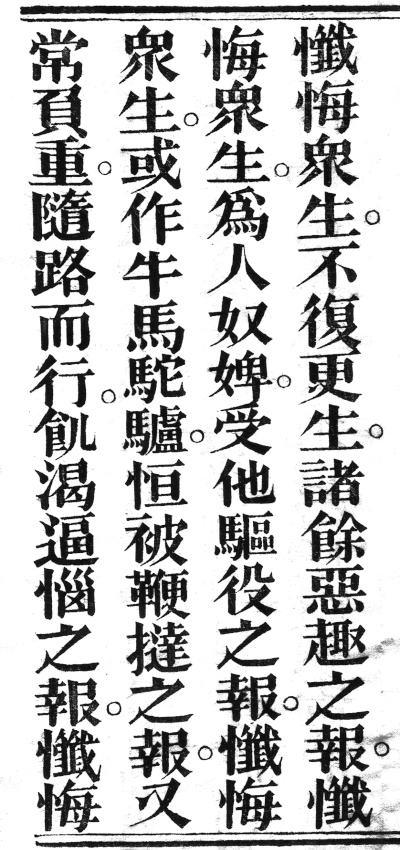 懺悔眾生。不復更生。諸餘惡趣之報。懺
悔眾生。為人奴婢。受他驅役之報。懺悔
眾生。或作牛馬駝驢。恒被鞭撻之報。又
常負重。隨路而行。飢渴逼惱之報。懺悔